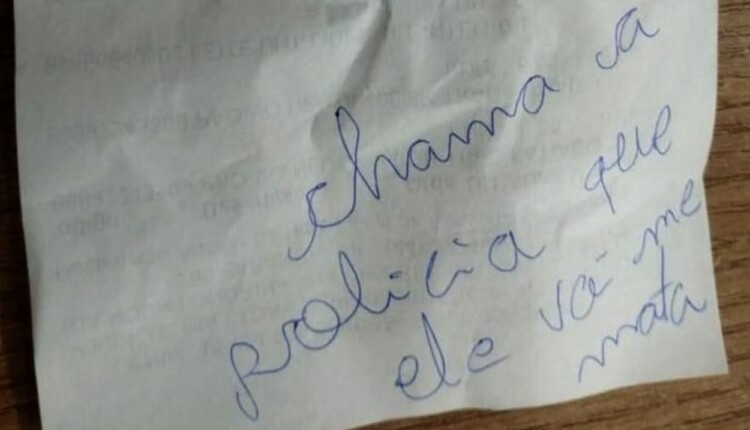 chama a
policia que
ele vá me
mata